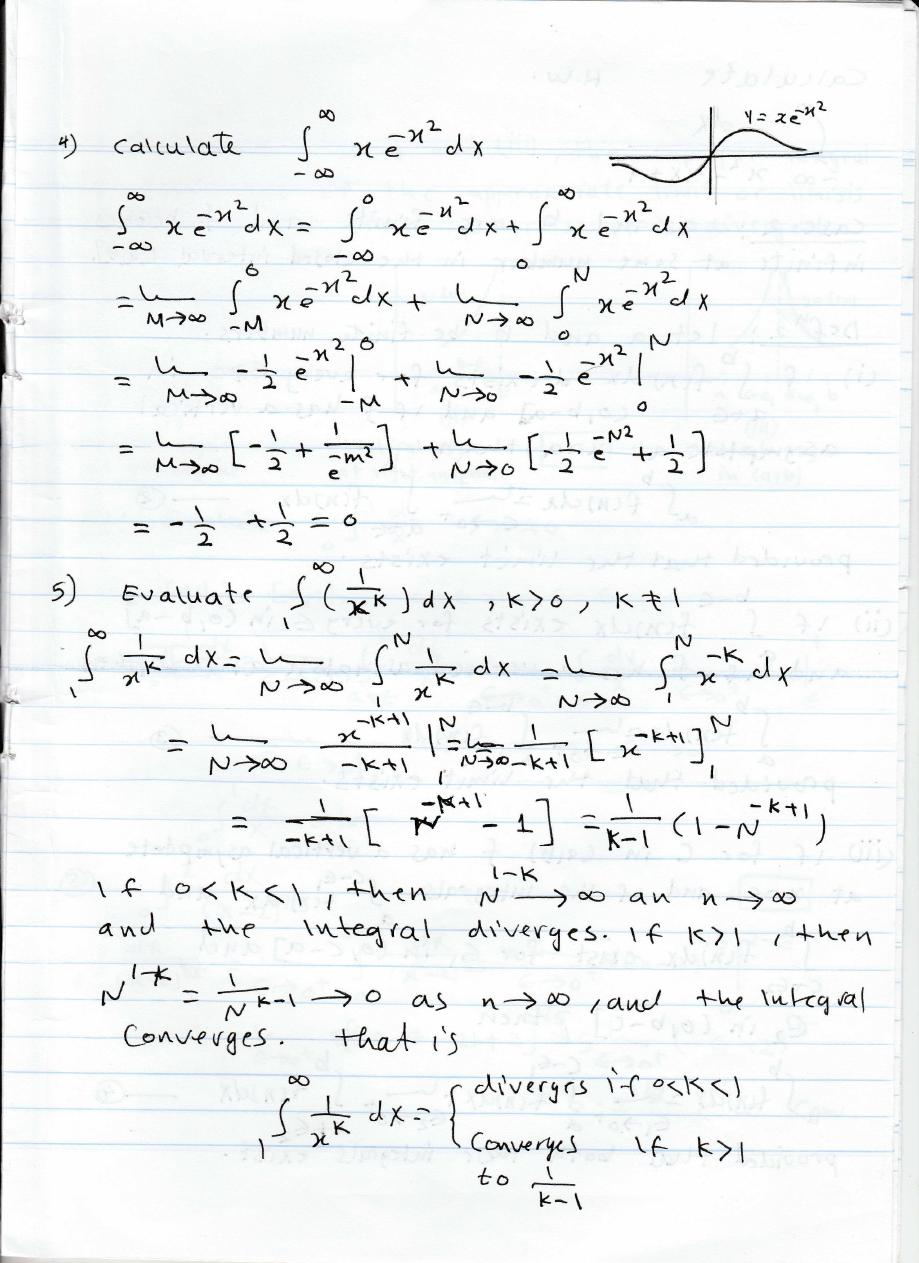 y = xe^{-x^2}
4) Calculate ∫_{-∞}^{∞} x e^{-x^2} dx
∫_{-∞}^{∞} x e^{-x^2} dx = ∫_{-∞}^{0} x e^{-x^2} dx + ∫_{0}^{∞} x e^{-x^2} dx
= lim_{M→∞} ∫_{-M}^{0} x e^{-x^2} dx + lim_{N→∞} ∫_{0}^{N} x e^{-x^2} dx
= lim_{M→∞} -1/2 e^{-x^2} |_{-M}^{0} + lim_{N→0} -1/2 e^{-x^2} |_{0}^{N}
= lim_{M→∞} [-1/2 + 1/e^{-m^2}] + lim_{N→0} [-1/2 e^{-N^2} + 1/2]
= -1/2 + 1/2 = 0
5) Evaluate ∫_{1}^{∞} (1/x^k) dx , k>0, k≠1
∫_{1}^{∞} 1/x^k dx = lim_{N→∞} ∫_{1}^{N} 1/x^k dx = lim_{N→∞} ∫_{1}^{N} x^{-k} dx
= lim_{N→∞} x^{-k+1}/(-k+1) |_{1}^{N} = lim_{N→∞} 1/(-k+1) [x^{-k+1}]_{1}^{N}
= 1/(-k+1) [N^{-k+1} - 1] = 1/(k-1) (1-N^{-k+1})
If 0<k<1, then N^{1-k} → ∞ an n→∞
and the integral diverges. If k>1, then
N^{1-k} = 1/N^{k-1} → 0 as n→∞, and the integral
Converges. that is
∫_{1}^{∞} 1/x^k dx = { diverges if 0<k<1
Converges if k>1
to 1/(k-1)